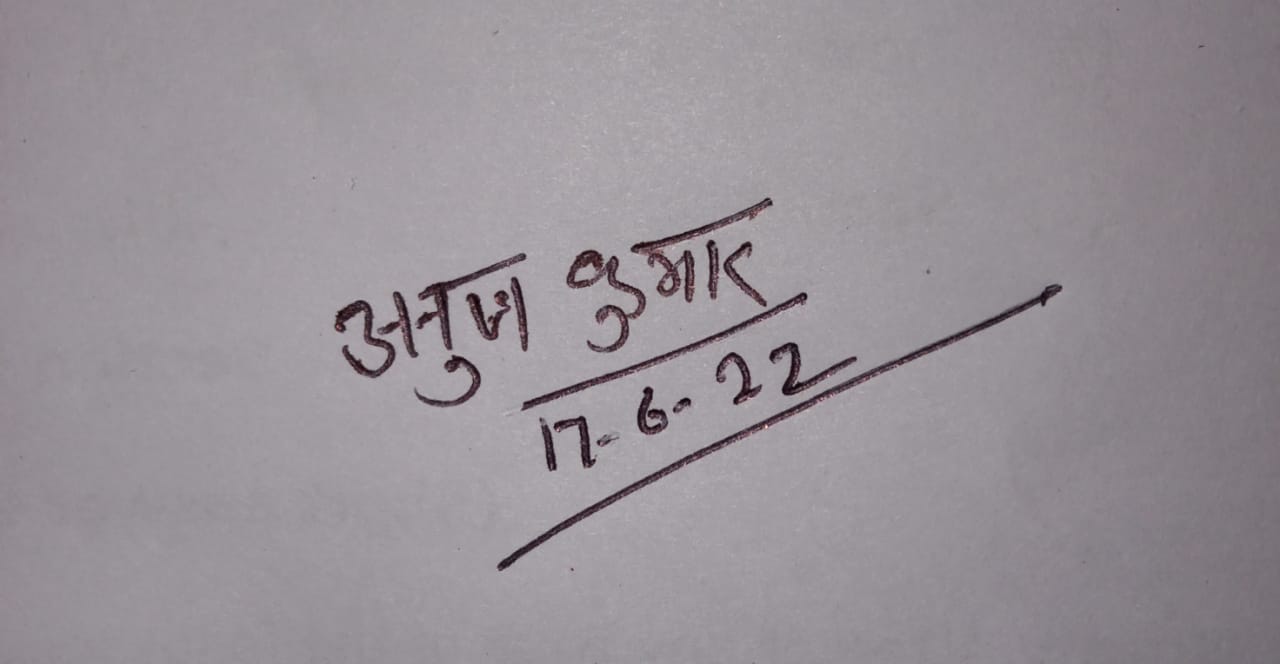 अनुज कुमार
17-6-22